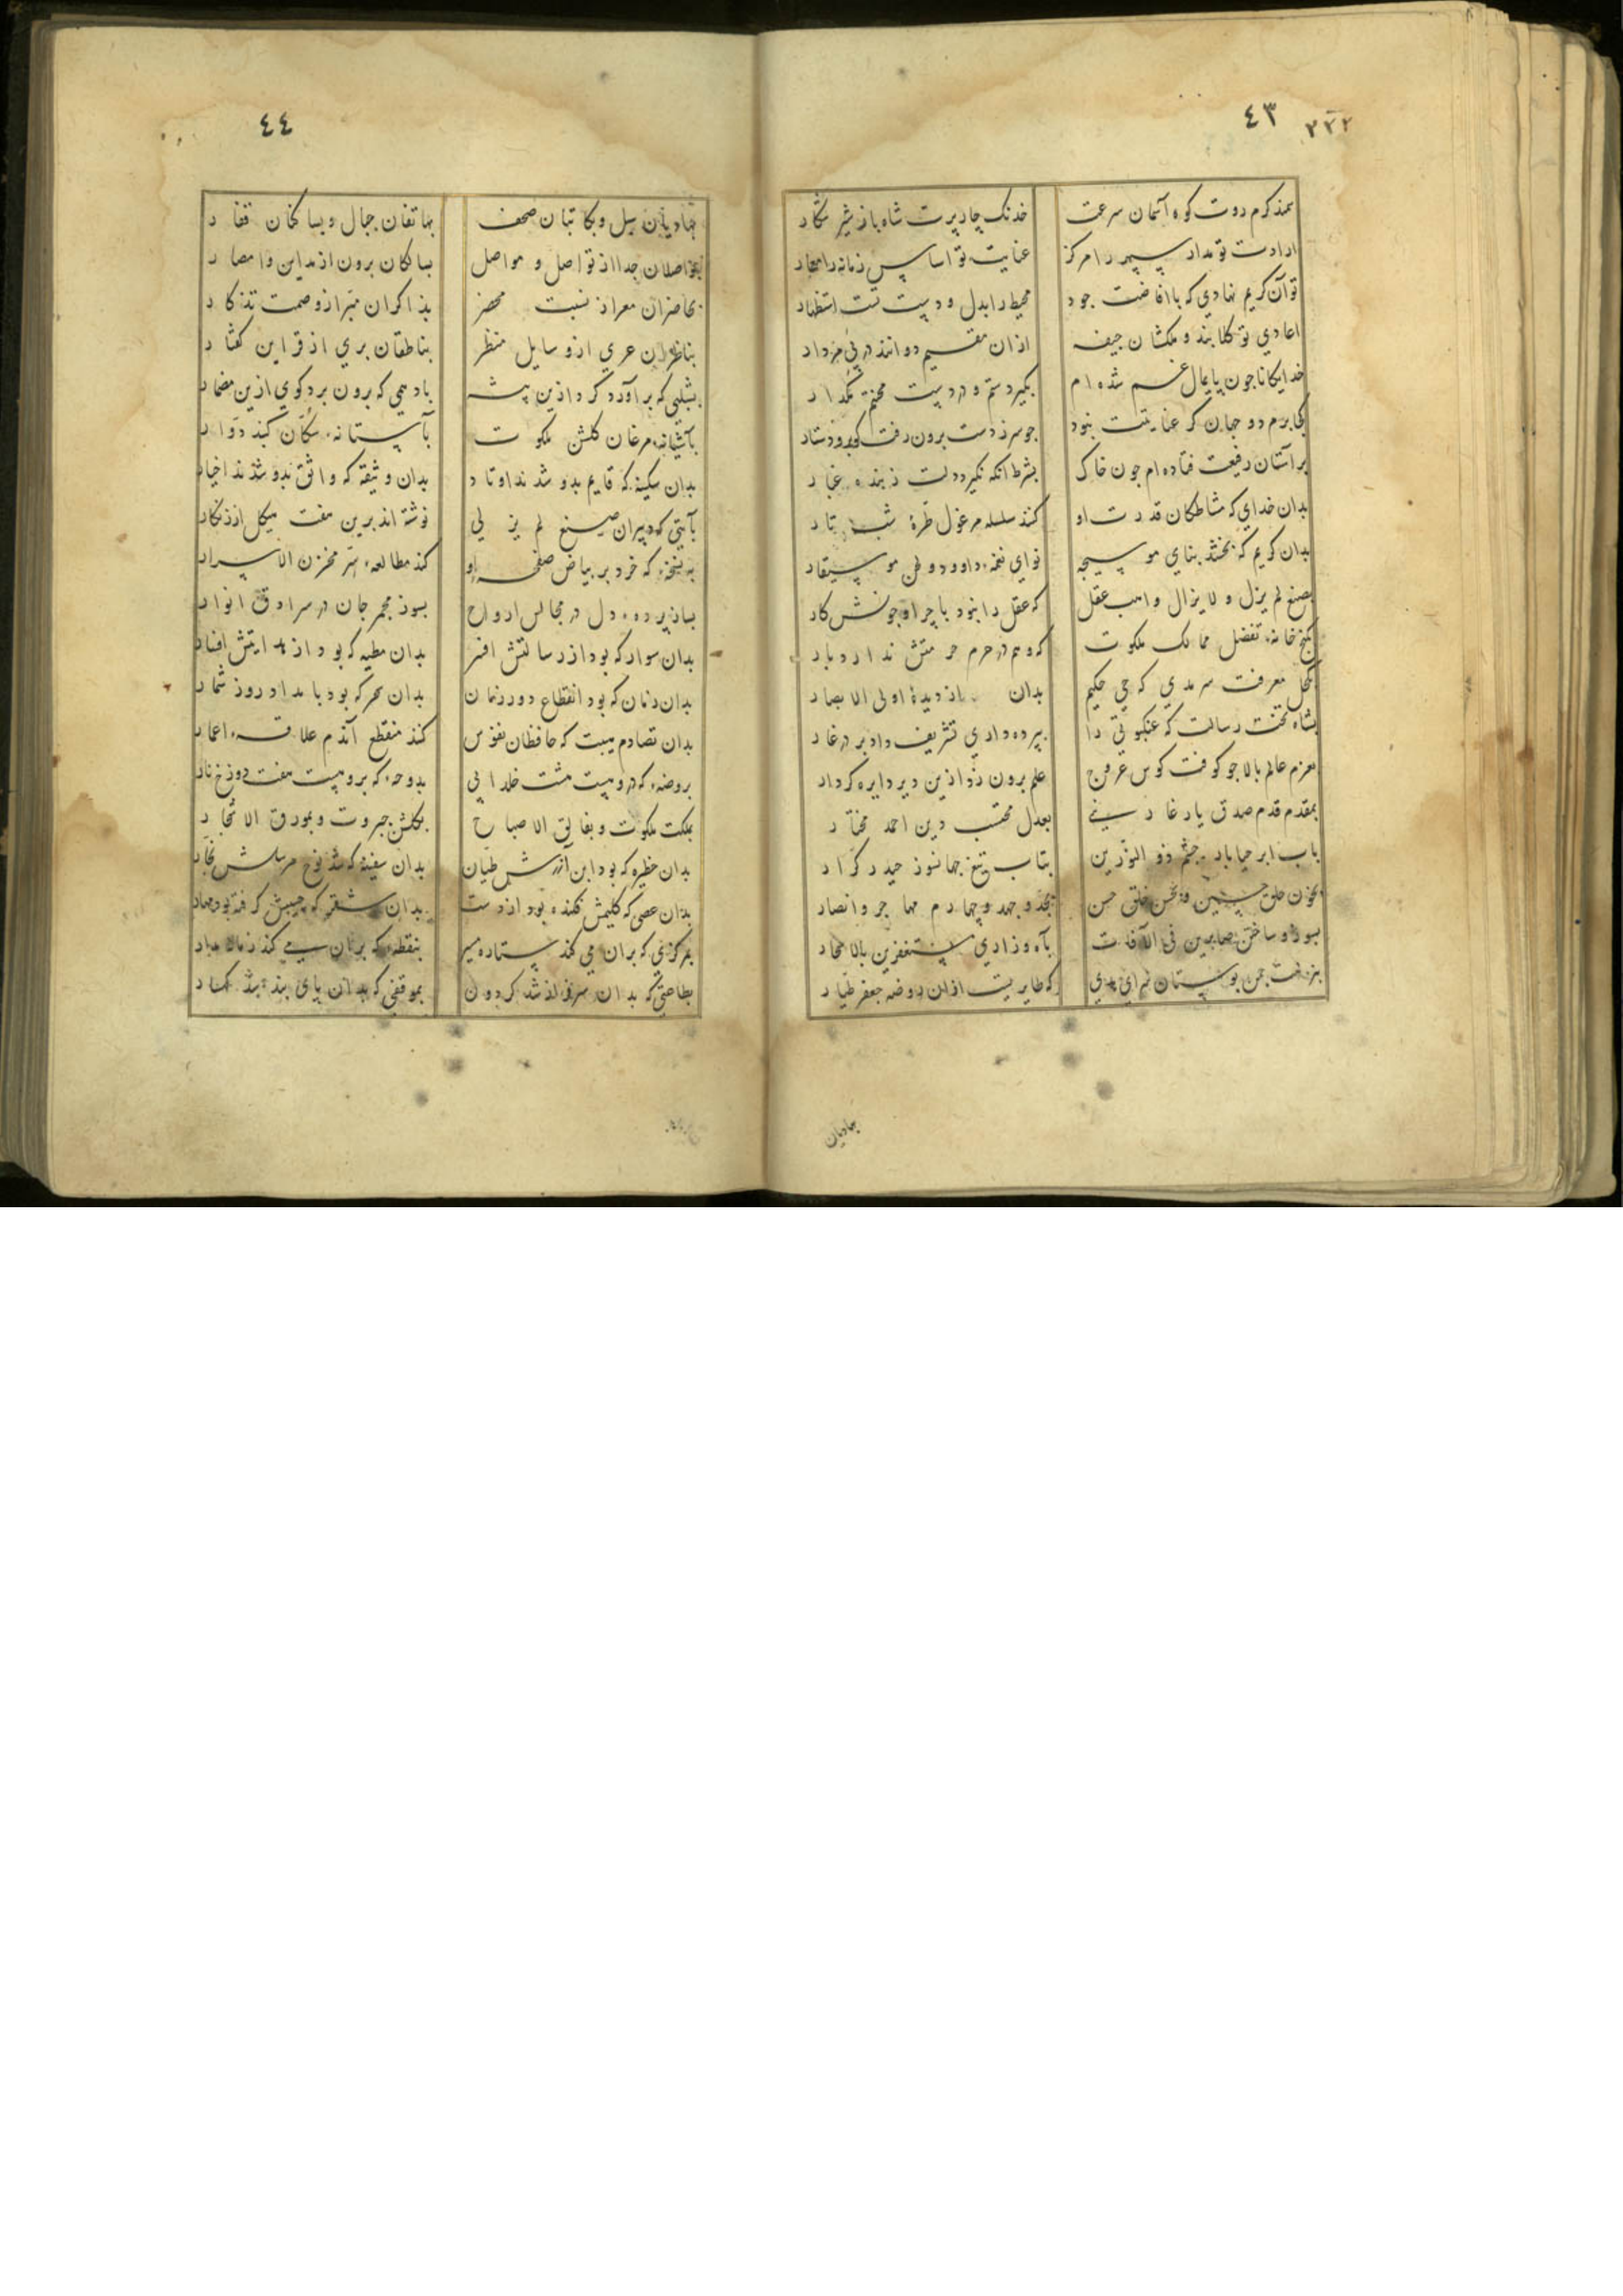 ٤٣ ٢٣٢
سمند کرم روت کوه آسمان سرعت خدنک چارپرت شاه باز شیر شکار
ارادت تو مدار سپهر را مرکز عنایت تو اساس زمانه را معمار
توآن کریم نهادی که باافاضت جود محیط را بدل و دست تست استظهار
اعادی تو کلابند و ملکشان جیفه ازان مقسیم دوانند در پی مردار
خدایکانا جون پایمال غم شده‌ام بکیر دستم و در دست محنتم مکذار
کجا برم دو جهان کر عنایتت نبود جو سر ز دست برون رفت کو برو دستار
بر آستان رفیعت فتاده‌ام جون خاک بشرط انکه نکیرد دلت ز بنده غبار
بدان خدای که مشاطکان قدرت او کنند سلسله مرغول طرهٔ شب تار
بدان کریم که بخشد بنای موسیجه نوای نغمهٔ داوود و لحن موسیقار
بصنع لم یزل و لا یزال واهب عقل که عقل را نبود با چرا و جونش کار
بکنج خانهٔ تفضل ممالک ملکوت که وهم در حرم حرمتش ندارد بار
بکحل معرفت سرمدی که حی حکیم بدان از دیدهٔ اولی الابصار
بشاه تخت رسالت که عنکبوتی را بپرده‌داری تشریف داد بر در غار
بعزم عالم بالا جو کوفت کوس عروج علم برون زد ازین دیر دایره کردار
بمقدم قدم صدق یار غار سنی بعدل محتسب دین احمد مختار
باب ابر حیابار جشم ذو النورین بتاب تیغ جهانسوز حیدر کرار
بخون حلق حسین و بحسن خلق حسن بجد و جهد و چهارم مهاجر و انصار
بسوز و ساختن صابرین فی الآفات بآه و زاری مستغفرین بالاسحار
بنزهت جمن بوستان سرای هدی که طایریست ازان روضه جعفر طیار
بهادیان
٤٤
بهادیان سبل و بکاتبان صحف بهاتفان جبال و بساکنان قفار
بواصلان جدا از تواصل و مواصل بسالکان برون از مداین و امصار
بحاضران معرا ز نسبت محضر بذاکران مبرا ز وصمت تذکار
بناظران عری از وسایل منظر بناطقان بری از قراین کفتار
بشبلیی که برآورد کرد ازین پیشه بادهمی که برون برد کوی ازین مضمار
بآشیانهٔ مرغان کلشن ملکوت بآستانهٔ سکان کنبد دوار
بدان سکینه که قایم بدو شدند اوتاد بدان وثیقه که واثق بدو شدند اخیار
بآیتی که دبیران صنع لم یزلی نوشته‌اند برین هفت هیکل زرنکار
به نسخهٔ که خرد بر بیاض صفحه او کند مطالعهٔ سر مخزن الاسرار
بساز پرده دل در مجالس ارواح بسوز مجمر جان در سرادق انوار
بدان سوار که بود از رسالتش افسر بدان مطیه که بود از هدایتش افسار
بدان زمان که بود انقطاع دور زمان بدان سحر که بود بامداد روز شمار
بدان تصادم هیبت که حافظان نفوس کنند منقطع آندم علاقهٔ اعمار
بروضهٔ که درو هست هشت خلد ابی بدوحهٔ که برو هست هفت دوزخ نار
بملکت ملکوت و بفالق الاصباح بکلشن جبروت و بمورق الاشجار
بدان حظیره که بود ابن آزرش طیان بدان سفینه که شد نوح مرسلش نجار
بدان عصی که کلیمش فکنده بود از دست بدان شتر که حبیبش کرفته بود مهار
بمرکزی که بران می کند ستاره مسیر بنقطهٔ که بران سیر می کند زمانه مدار
بطاعتی که بدان سرفراز شد کردون بموقفی که بدان پای بند شد کهسار